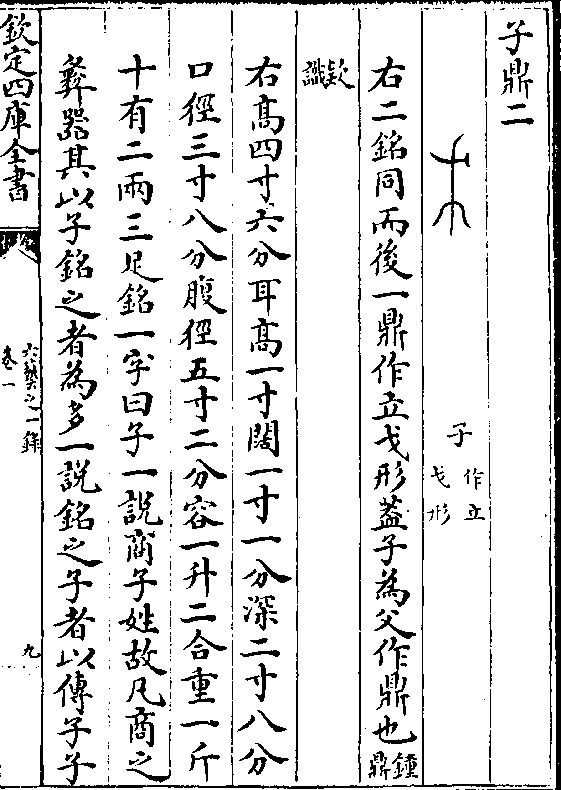 子鼎二
子作立戈形
右二銘同而後一鼎作立戈形葢子為父作鼎也鍾鼎
欵識
右髙四寸六分耳髙一寸闊一寸一分深二寸八分
口徑三寸八分腹徑五寸二分容一升二合重一斤
十有二兩三足銘一字曰子一説商子姓故凡商之
彞器其以子銘之者為多一説銘之子者以傳子子
欽定四庫全書
六藝之一錄
卷一
九